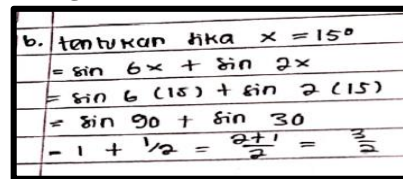 b. tentukan jika x = 15°
= sin 6x + sin 2x
= sin 6 (15) + sin 2 (15)
= sin 90 + sin 30
- 1 + 1/2 = 2+1/2 = 3/2